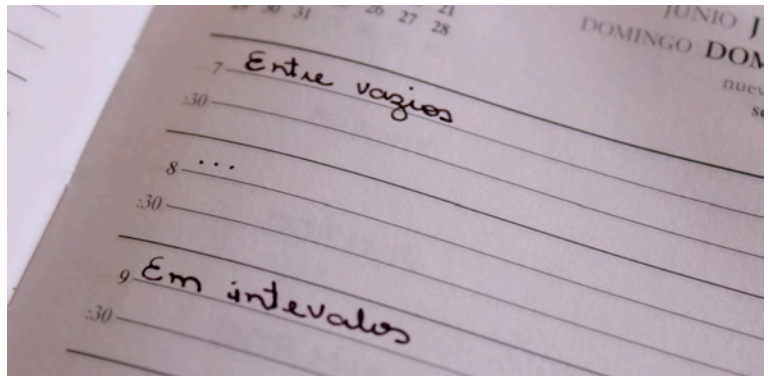 29 30 31 26 27 28 21
JUNIO J
DOMINGO DOM
nuev
7 Entre vazios
:30
8 ...
:30
9 Em intevalos
:30